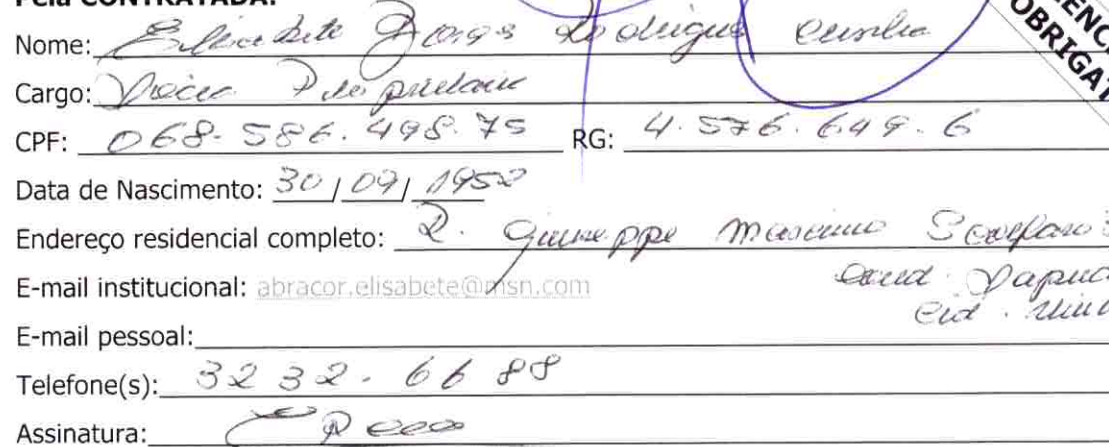 Pela CONTRATADA:
Nome: Elisabete Borges Rodrigues Cunha
Cargo: Sócia Proprietária
CPF: 068.586.498.75 RG: 4.576.649.6
Data de Nascimento: 30/09/1952
Endereço residencial completo: R. Giuseppe Maximo Scolfaro
E-mail institucional: abracor.elisabete@msn.com
Cond.
Cid.
E-mail pessoal:
Telefone(s): 3232.6688
Assinatura: